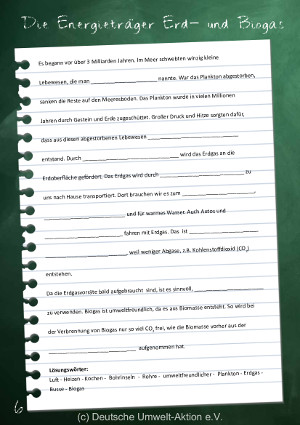 Die Energieträger Erd- und Biogas
Es begann vor über 3 Milliarden Jahren. Im Meer schwebten winzig kleine
Lebewesen, die man ______________________ nannte. War das Plankton abgestorben,
sanken die Reste auf den Meeresboden. Das Plankton wurde in vielen Millionen
Jahren durch Gestein und Erde zugeschüttet. Großer Druck und Hitze sorgten dafür,
dass aus diesen abgestorbenen Lebewesen ______________________
entstand. Durch ______________________ wird das Erdgas an die
Erdoberfläche gefördert. Das Erdgas wird durch ______________________ zu
uns nach Hause transportiert. Dort brauchen wir es zum ______________________,
______________________ und für warmes Wasser. Auch Autos und
______________________ fahren mit Erdgas. Das ist ______________________
______________________, weil weniger Abgase, z.B. Kohlenstoffdioxid (CO2)
entstehen.
Da die Erdgasvorräte bald aufgebraucht sind, ist es sinnvoll, ______________________
zu verwenden. Biogas ist umweltfreundlich, da es aus Biomasse entsteht. So wird bei
der Verbrennung von Biogas nur so viel CO2 frei, wie die Biomasse vorher aus der
______________________ aufgenommen hat.
Lösungswörter:
Luft - Heizen - Kochen - Bohrinseln - Rohre - umweltfreundlicher - Plankton - Erdgas -
Busse - Biogas
6
(c) Deutsche Umwelt-Aktion e.V.